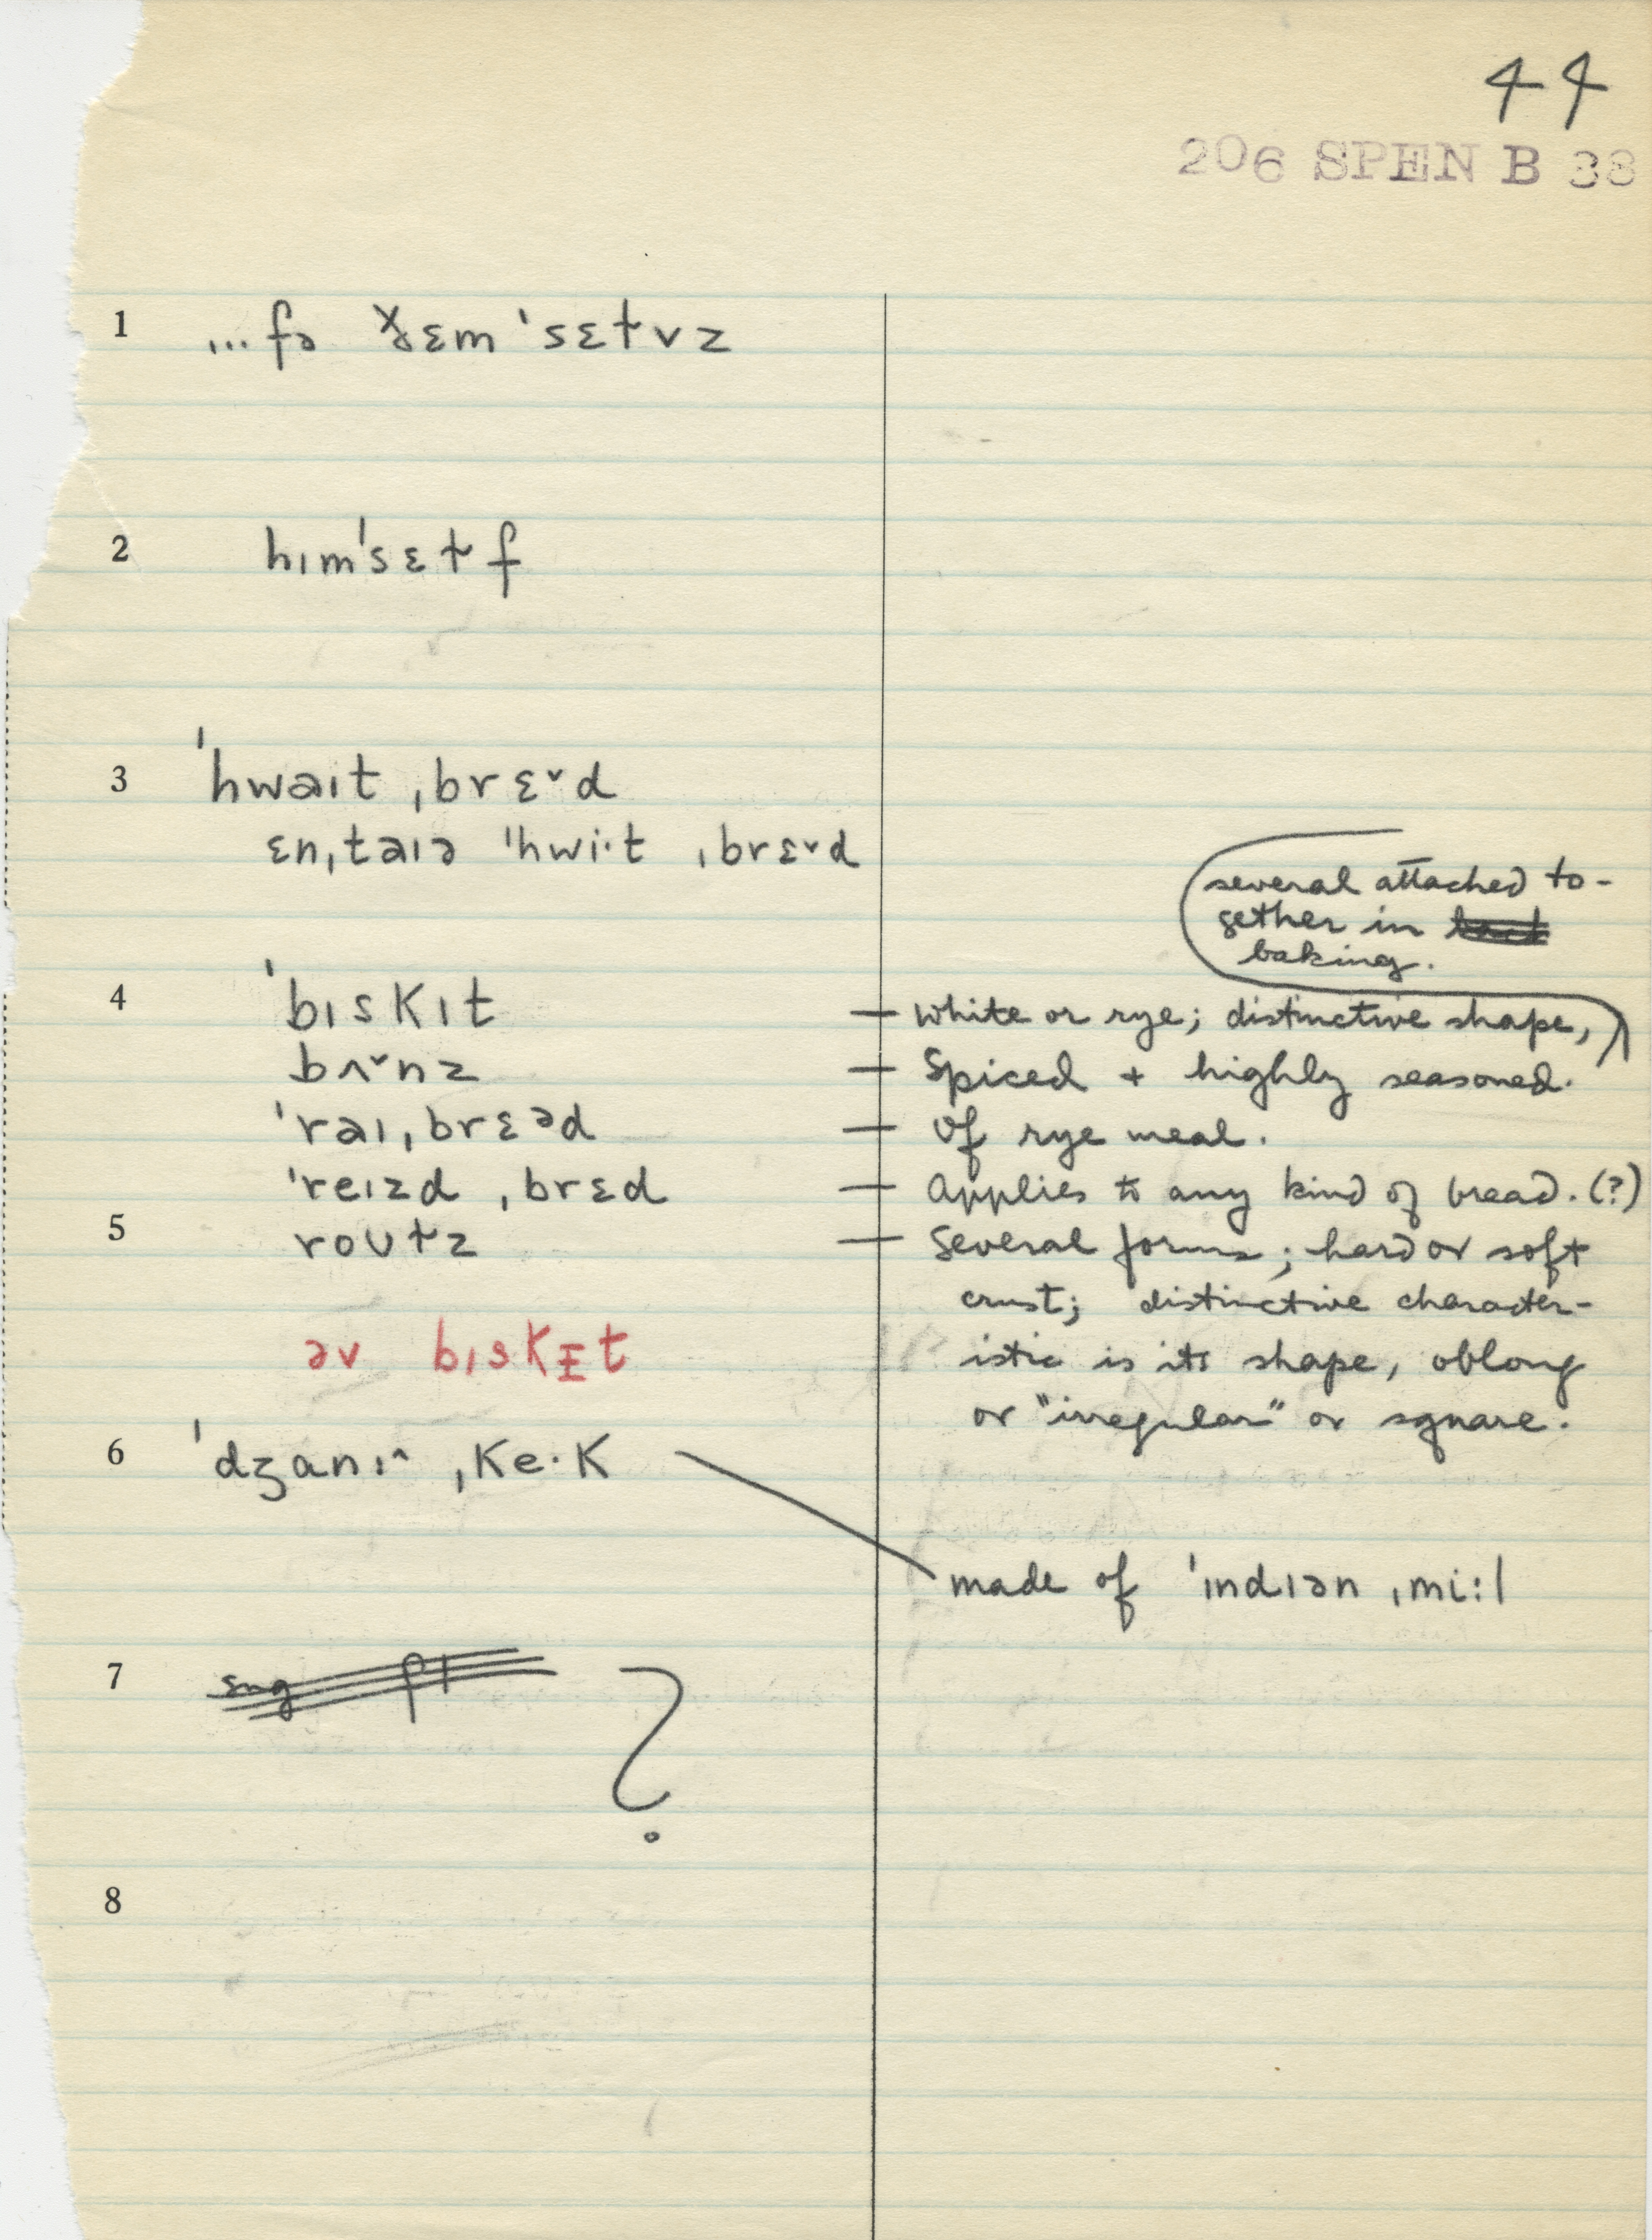 44
206 SPEN B 38
1 ...fə ðɛm'sɛɫvz
2 hɪm'sɛɫf
3 'hwaɪt ˌbrɛ˅d
ɛnˌtaɪə 'hwi·t ˌbrɛ˅d
several attached to-
gether in
baking.
4 'bɪskɪt — White or rye; distinctive shape,
bʌ˅nz — Spiced + highly seasoned.
'raɪˌbrɛᵊd — Of rye meal.
'reɪzd ˌbrɛd — Applies to any kind of bread. (?)
5 roʊɫz — Several forms; hard or soft
crust; distinctive character-
əv bɪskɪt istic is its shape, oblong
or "irregular" or square.
6 'dʒanɪ^ ˌke·k
made of 'ɪndɪən ˌmi:l
7 ?
8